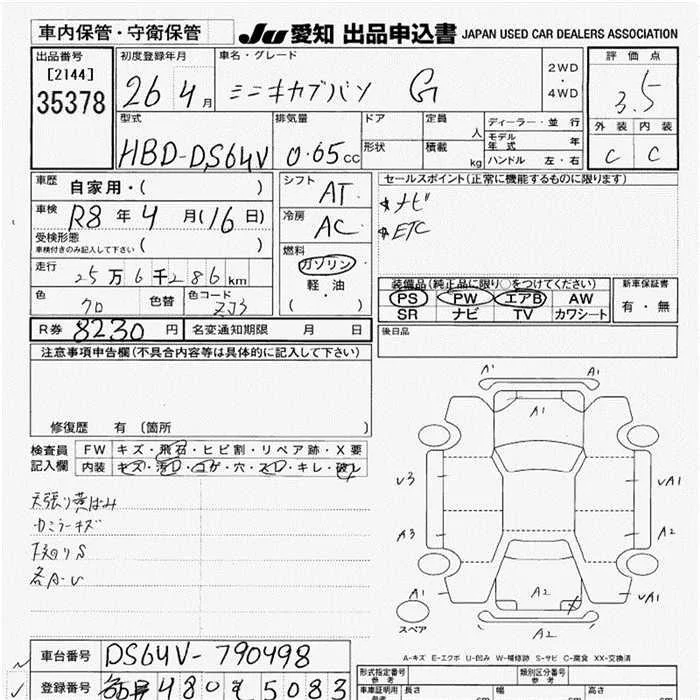 車内保管・守衛保管
JU 愛知 出品申込書 JAPAN USED CAR DEALERS ASSOCIATION
出品番号
[2144]
35378
初度登録年月
26 4月
車名・グレード
ミニキカブバン G
2WD
・
4WD
評価点
3.5
外装 内装
C C
型式
HBD-DS64V
排気量
0.65cc
ドア
形状
定員
人
積載
kg
ディーラー・並行
モデル年式 年
ハンドル 左・右
車歴 自家用・( )
車検 R8年4月(16日)
受検形態
車検付きのみ記入して下さい ( )
走行
25万6千286km
色
クロ
色替
色コード
ZJ3
シフト
AT
冷房
AC
燃料
ガソリン
軽・油
( )
セールスポイント(正常に機能するものに限ります)
ナビ
ETC
装備品(純正品に限り○をつけてください)
PS PW エアB AW
SR ナビ TV カワシート
新車保証書
有・無
後日品
R券 8230円
名変通知期限 月 日
注意事項申告欄(不具合内容等は具体的に記入して下さい)
修復歴 有 (箇所 )
検査員記入欄
FW キズ・飛石・ヒビ割・リペア跡・X要
内装 キズ・汚レ・コゲ・穴・スレ・キレ・破レ
天張り黄ばみ
カミラーキズ
下廻りS
各A-U
A1 A1
A1
v3
A3
A1
UA1
A2
UA1
A2
A2
スペア
A-キズ E-エクボ U-凹み W-補修跡 S-サビ C-腐食 XX-交換済
車台番号 DS64V-790498
登録番号 480 5083
形式指定番号
参考
類別区分番号
参考
車庫証明用
参考
長さ cm
幅 cm
高さ cm